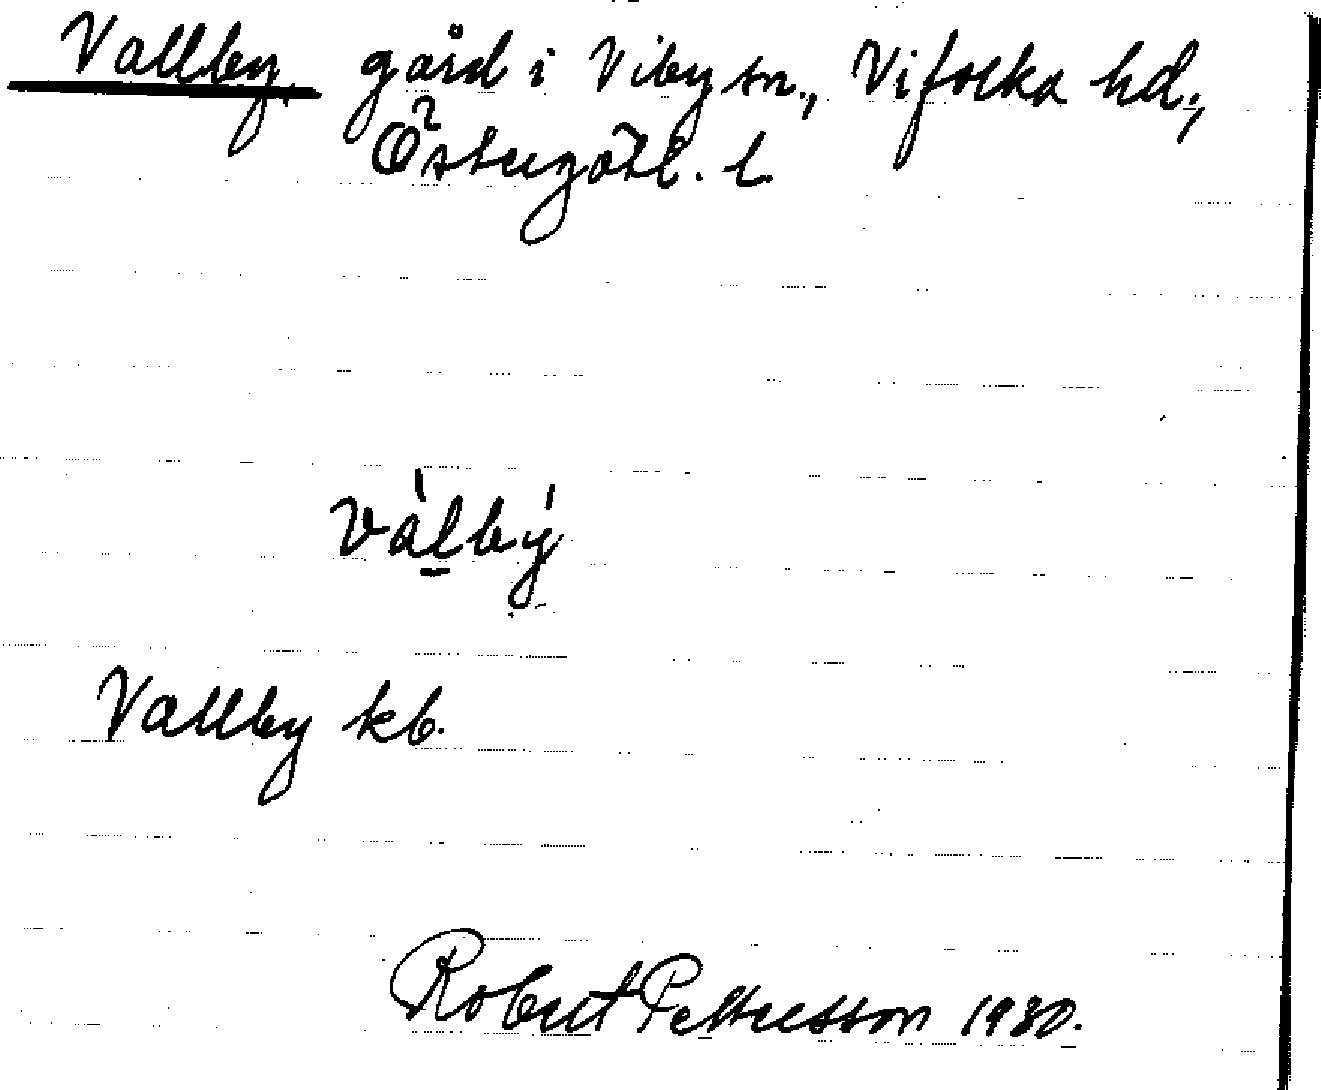 Vallby, gård i Viby sn., Vifolka hd.,
Östergötl. l.
vàlbý
Vallby kb.
Robert Pettersson 1930.